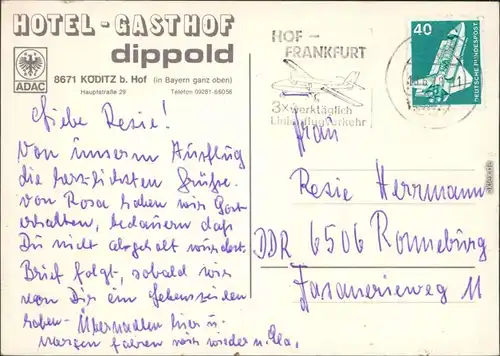 HOTEL-GASTHOF
dippold
ADAC
8671 KÖDITZ b. Hof (in Bayern ganz oben)
Hauptstraße 29 Telefon 09281-66056
HOF-
FRANKFURT
3x werktäglich
Linienflugverkehr
40
DEUTSCHE BUNDESPOST
Liebe Resie!
Von unserm Ausflug
die herzlichsten Grüße.
von Rosa haben wir Post
erhalten, bedauern daß
Du nicht abgeholt wurdest.
Brief folgt, sobald wir
von Dir ein Lebenszeichen
haben - Übernachten hier u.
Morgen fahren wir wieder n.
Frau
Resie Herrmann
DDR 6506 Ronneburg
Fasanerieweg 11